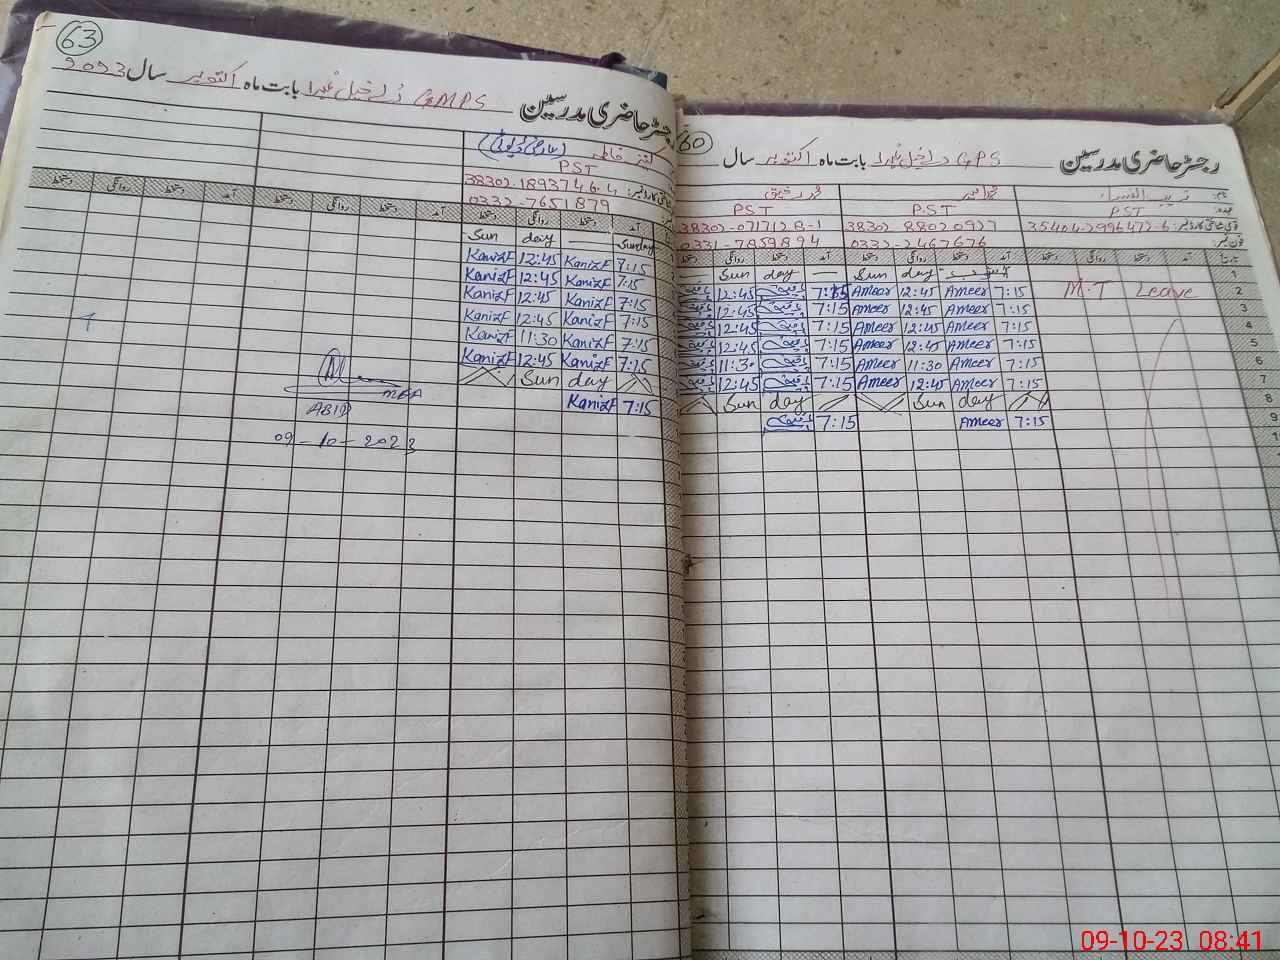 63
رجسٹر حاضری مدرسین GMPS بابت ماہ اکتوبر سال 2023
کنیز فاطمہ
PST
38302-1893746-4
0332-7651879
آمد دستخط روانگی دستخط آمد دستخط روانگی دستخط آمد دستخط روانگی دستخط
Sunday — day Sun
7:15 KanizF 12:45 KanizF
7:15 KanizF 12:45 KanizF
7:15 KanizF 12:45 KanizF
7:15 KanizF 12:45 KanizF
7:15 KanizF 11:30 KanizF
7:15 KanizF 12:45 KanizF
Sun day
7:15 KanizF
MEA
ABID
09-10-2023
60
رجسٹر حاضری مدرسین GPS بابت ماہ اکتوبر سال
نام:
عہدہ: PST PST PST
قومی شناختی کارڈ نمبر: 35404-2996472-6 38302-8802092-7 38302-0717128-1
فون نمبر: 0332-2467676 0331-7859894
تاریخ آمد دستخط روانگی دستخط آمد دستخط روانگی دستخط آمد دستخط روانگی دستخط
1 day Sun — day Sun
2 M.T Leave 7:15 Ameer 12:45 Ameer 7:15 12:45
3 7:15 Ameer 12:45 Ameer 7:15 12:45
4 7:15 Ameer 12:45 Ameer 7:15 12:45
5 7:15 Ameer 12:45 Ameer 7:15 12:45
6 7:15 Ameer 11:30 Ameer 7:15 11:30
7 7:15 Ameer 12:45 Ameer 7:15 12:45
8 Sun day Sun day
9 7:15 Ameer 7:15
09-10-23 08:41